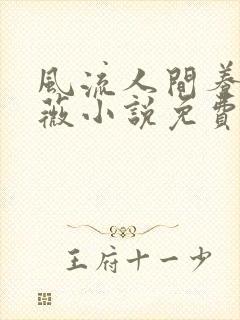 風流人間養
薇小說免費
王府十一少